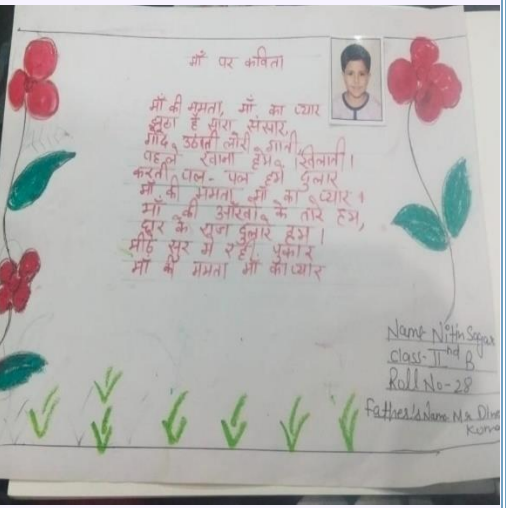 माँ पर कविता
माँ की ममता, माँ का प्यार
झूठा है सारा संसार,
गोद उठाती लोरी गाती
पहले खाना हमें खिलाती।
करती पल-पल हमें दुलार
माँ की ममता माँ का प्यार।
माँ की आँखों के तारे हम,
द्वार के राज दुलारे हम।
मीठे सुर में रही पुकार
माँ की ममता माँ का प्यार
Name- Nitin Sagar
Class- IInd B
Roll No- 28
Father's Name Mr.
Kuma